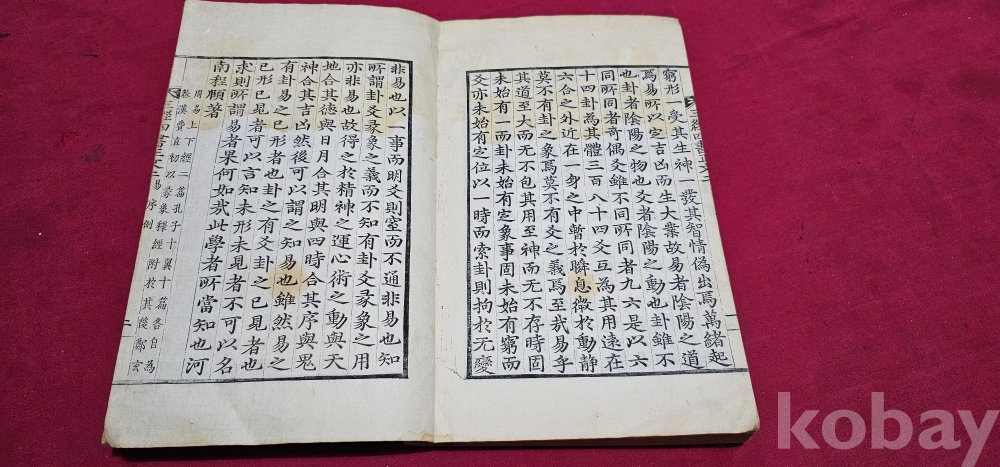 窮形一受其生神一發其智情偽出焉萬緒起
焉易所以定吉凶而生大業故易者陰陽之道
也卦者陰陽之物也爻者陰陽之動也卦雖不
同所同者奇偶爻雖不同所同者九六是以六
十四卦為其體三百八十四爻互為其用遠在
六合之外近在一身之中暫於瞬息微於動靜
莫不有卦之象焉莫不有爻之義焉至哉易乎
其道至大而无不包其用至神而无不存時固
未始有一而卦未始有定象事固未始有窮而
爻亦未始有定位以一時而索卦則拘於无變
三經四書正文二
非易也以一事而明爻則窒而不通非易也知
所謂卦爻彖象之義而不知有卦爻彖象之用
亦非易也故得之於精神之運心術之動與天
地合其德與日月合其明與四時合其序與鬼
神合其吉凶然後可以謂之知易也雖然易之
有卦易之已形者也卦之有爻卦之已見者也
已形已見者可以言知未形未見者不可以名
求則所謂易者果何如哉此學者所當知也河
南程頤著
周易上下經二篇孔子十翼十篇各自為
卷漢費直初以彖象釋經附於其後鄭玄
三經四書正文二 易序例 二
kobay